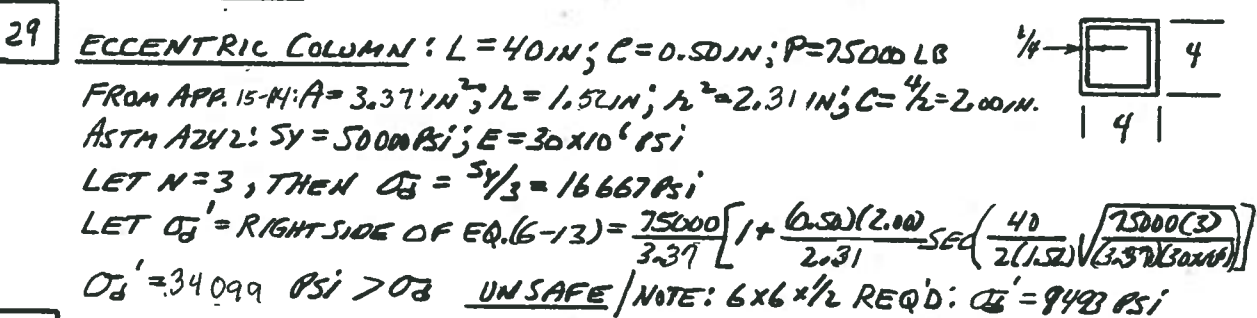 29
ECCENTRIC COLUMN: L = 40 IN; e = 0.50 IN; P = 75000 LB
FROM APP. 15-14: A = 3.37 IN²; r = 1.52 IN; r² = 2.31 IN²; C = 4/2 = 2.00 IN.
ASTM A242: Sy = 50000 PSi; E = 30x10⁶ PSi
LET N = 3, THEN σd = Sy/3 = 16667 PSi
LET σd' = RIGHT SIDE OF EQ.(6-13) = 75000/3.37 [1 + (0.50)(2.00)/2.31 SEC(40/2(1.52) √(75000(3)/(3.37)(30x10⁶)))]
σd' = 34099 PSi > σd UNSAFE / NOTE: 6x6x1/2 REQ'D: σd' = 9493 PSi
1/4
4
4